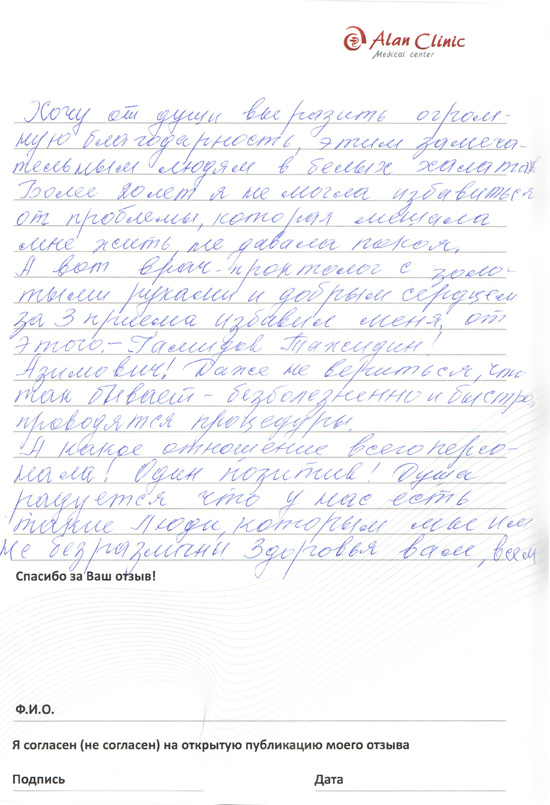 Alan Clinic
Medical center
Хочу от души выразить огром-
ную благодарность, этим замеча-
тельным людям в белых халатах
Более 20 лет я не могла избавиться
от проблемы, которая мешала
мне жить не давала покоя.
А вот врач-проктолог с золо-
тыми руками и добрым сердцем
за 3 приема избавил меня, от
этого. - Гамидов Тажидин!
Азимович! Даже не вериться, что
так бывает - безболезненно и быстро,
проводятся процедуры.
А какое отношение всего персо-
нала! Один позитив! Душа
радуется что у нас есть
такие Люди, которым мы им
Не безразличны Здоровья вам, всем
Спасибо за Ваш отзыв!
Ф.И.О.
Я согласен (не согласен) на открытую публикацию моего отзыва
Подпись Дата